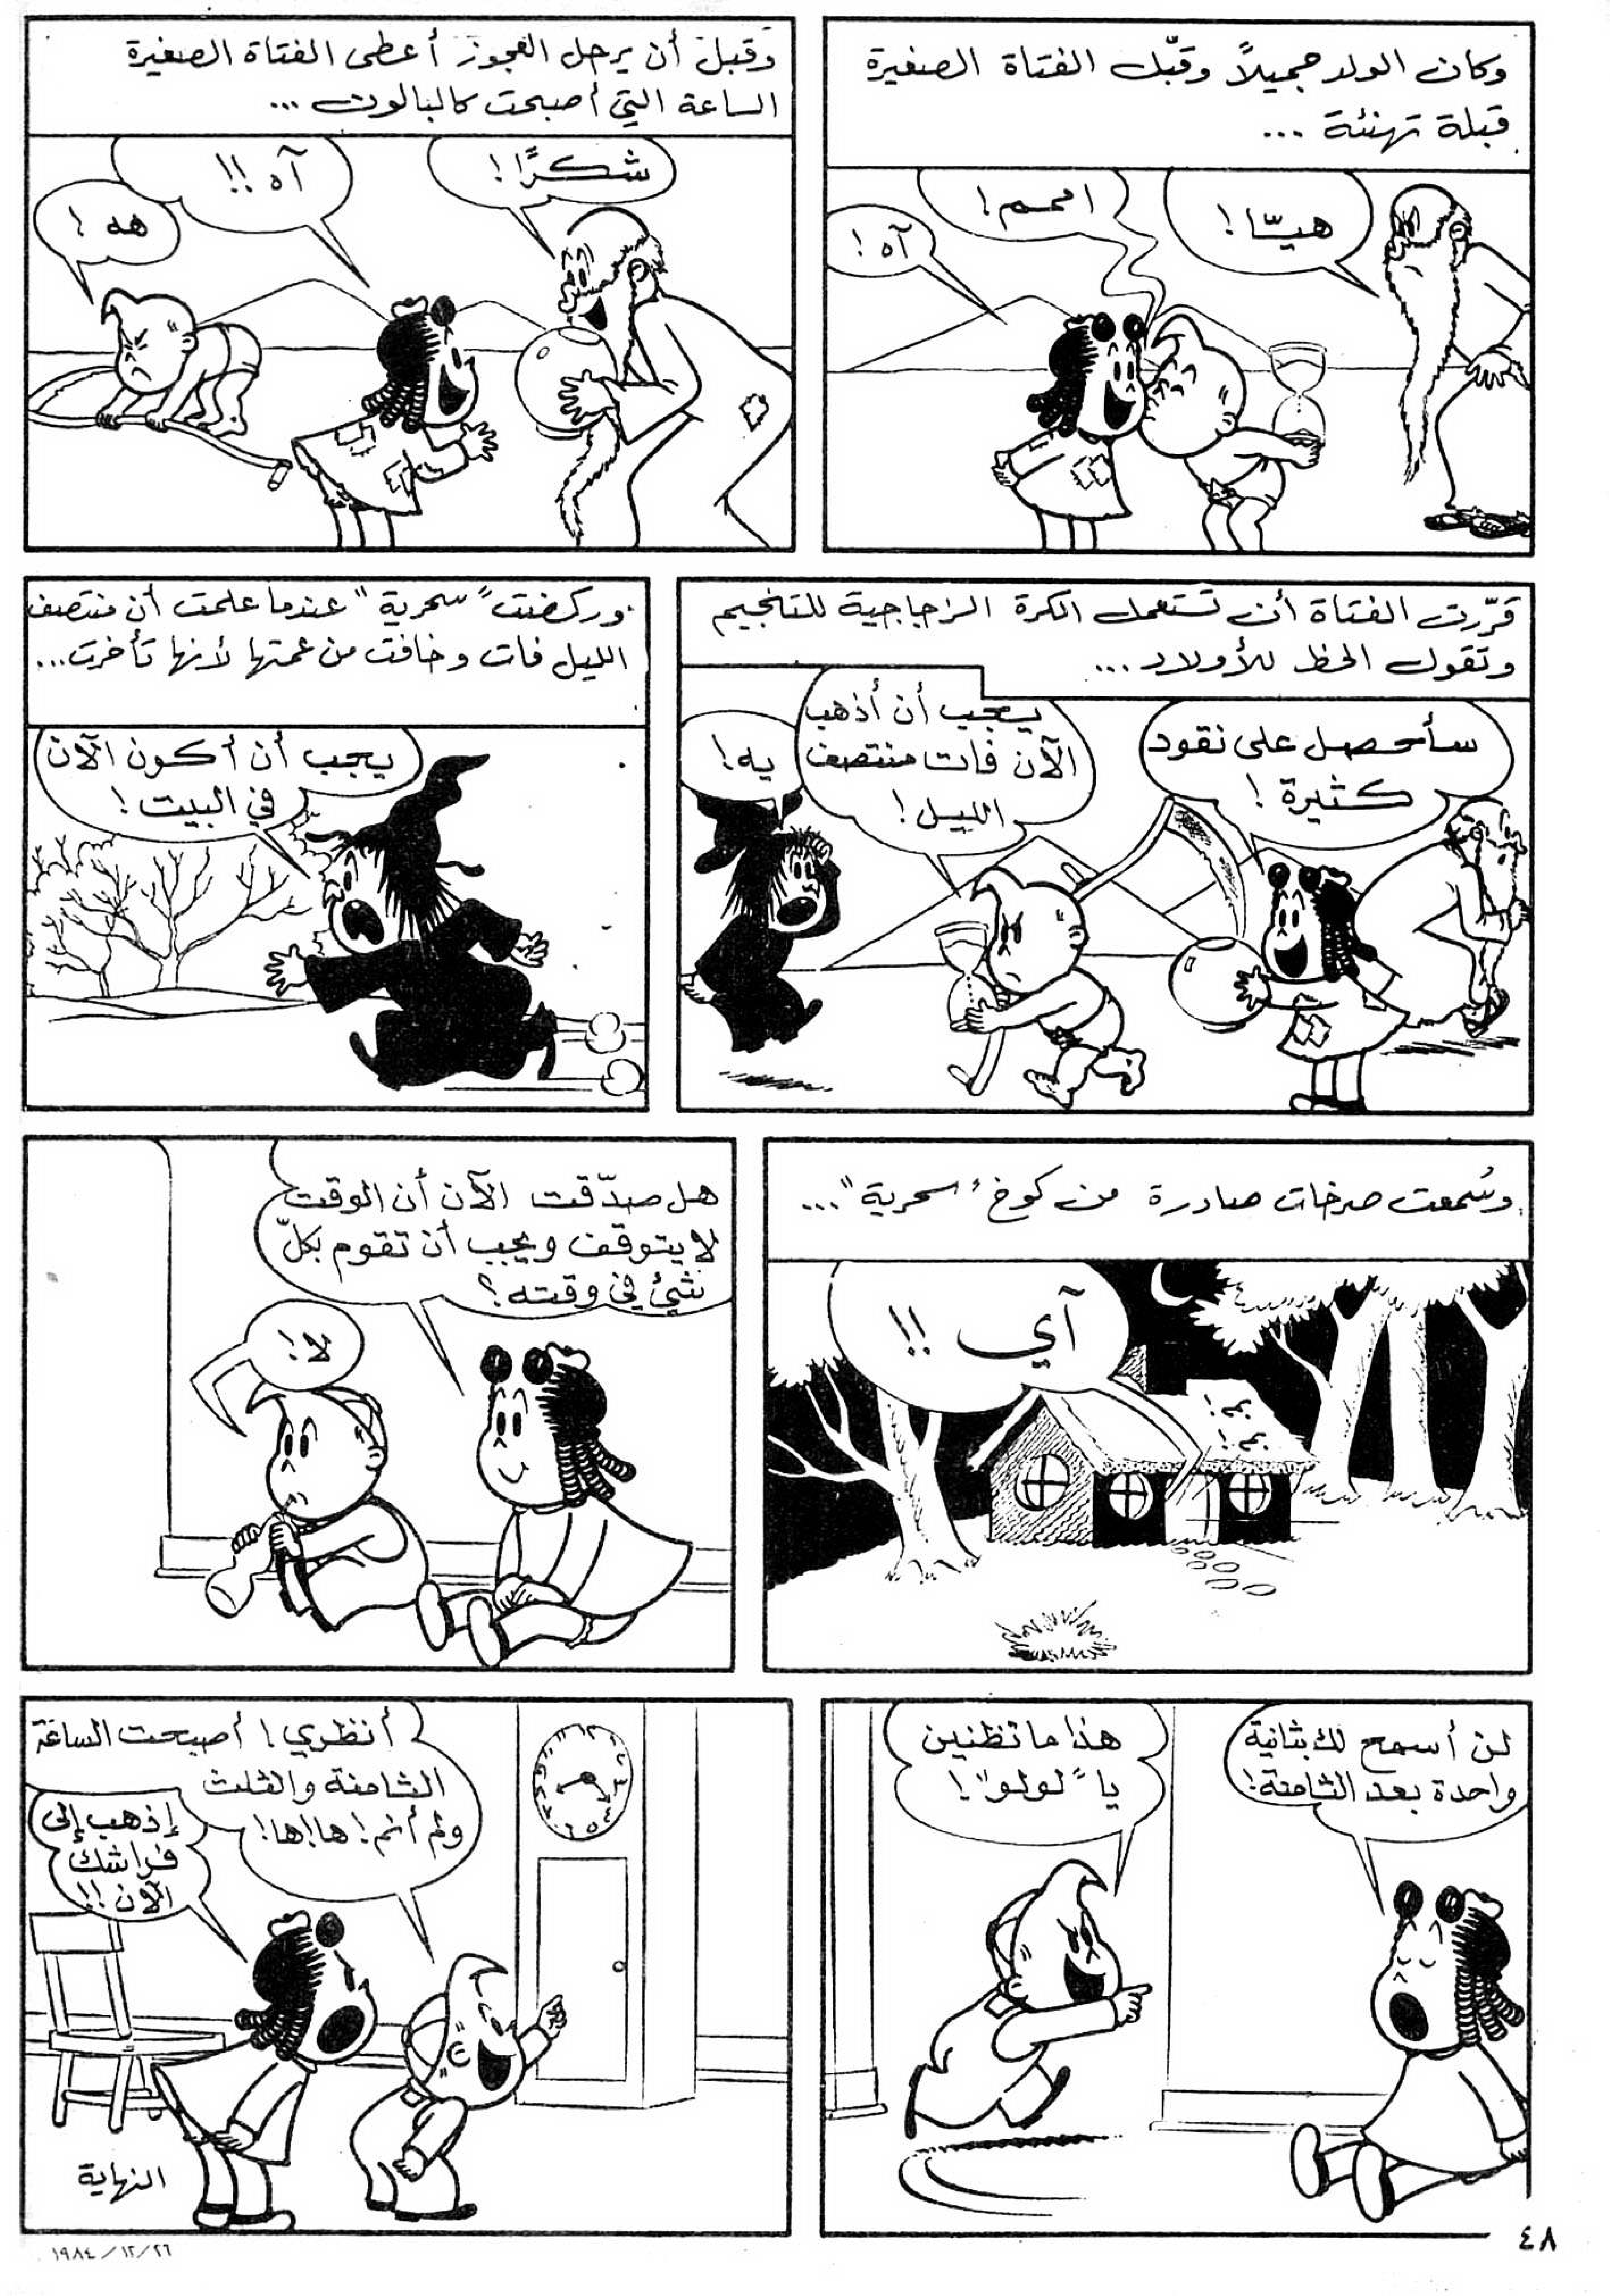 وكان الولد جميلاً وقبّل الفتاة الصغيرة
قبلة تهنئة ...
هيّا!
اممم!
آه!
وقبل أن يرحل العجوز أعطى الفتاة الصغيرة
الساعة التي أصبحت كالبالون ...
شكرًا!
آه!!
هه!
قرّرت الفتاة أن تستعمل الكرة الزجاجية للتنجيم
وتقول الحظ للأولاد ...
سأحصل على نقود
كثيرة!
يجب أن أذهب
الآن فات منتصف
الليل!
يه!
وركضت "سحرية" عندما علمت أن منتصف
الليل فات وخافت من عمتها لأنها تأخرت...
يجب أن أكون الآن
في البيت!
وسُمعت صرخات صادرة من كوخ "سحرية"...
آي !!
بم!
بم!
هل صدّقت الآن أن الوقت
لا يتوقف ويجب أن تقوم بكلّ
شيئ في وقته؟
لا!
لن أسمح لك بثانية
واحدة بعد الثامنة!
هذا ما تظنين
يا "لولو"!
أنظري! أصبحت الساعة
الثامنة والثلث
ولم أنم! ها!ها!
إذهب إلى
فراشك
الآن!!
النهاية
٤٨
١٩٨٤/١٢/٢٦